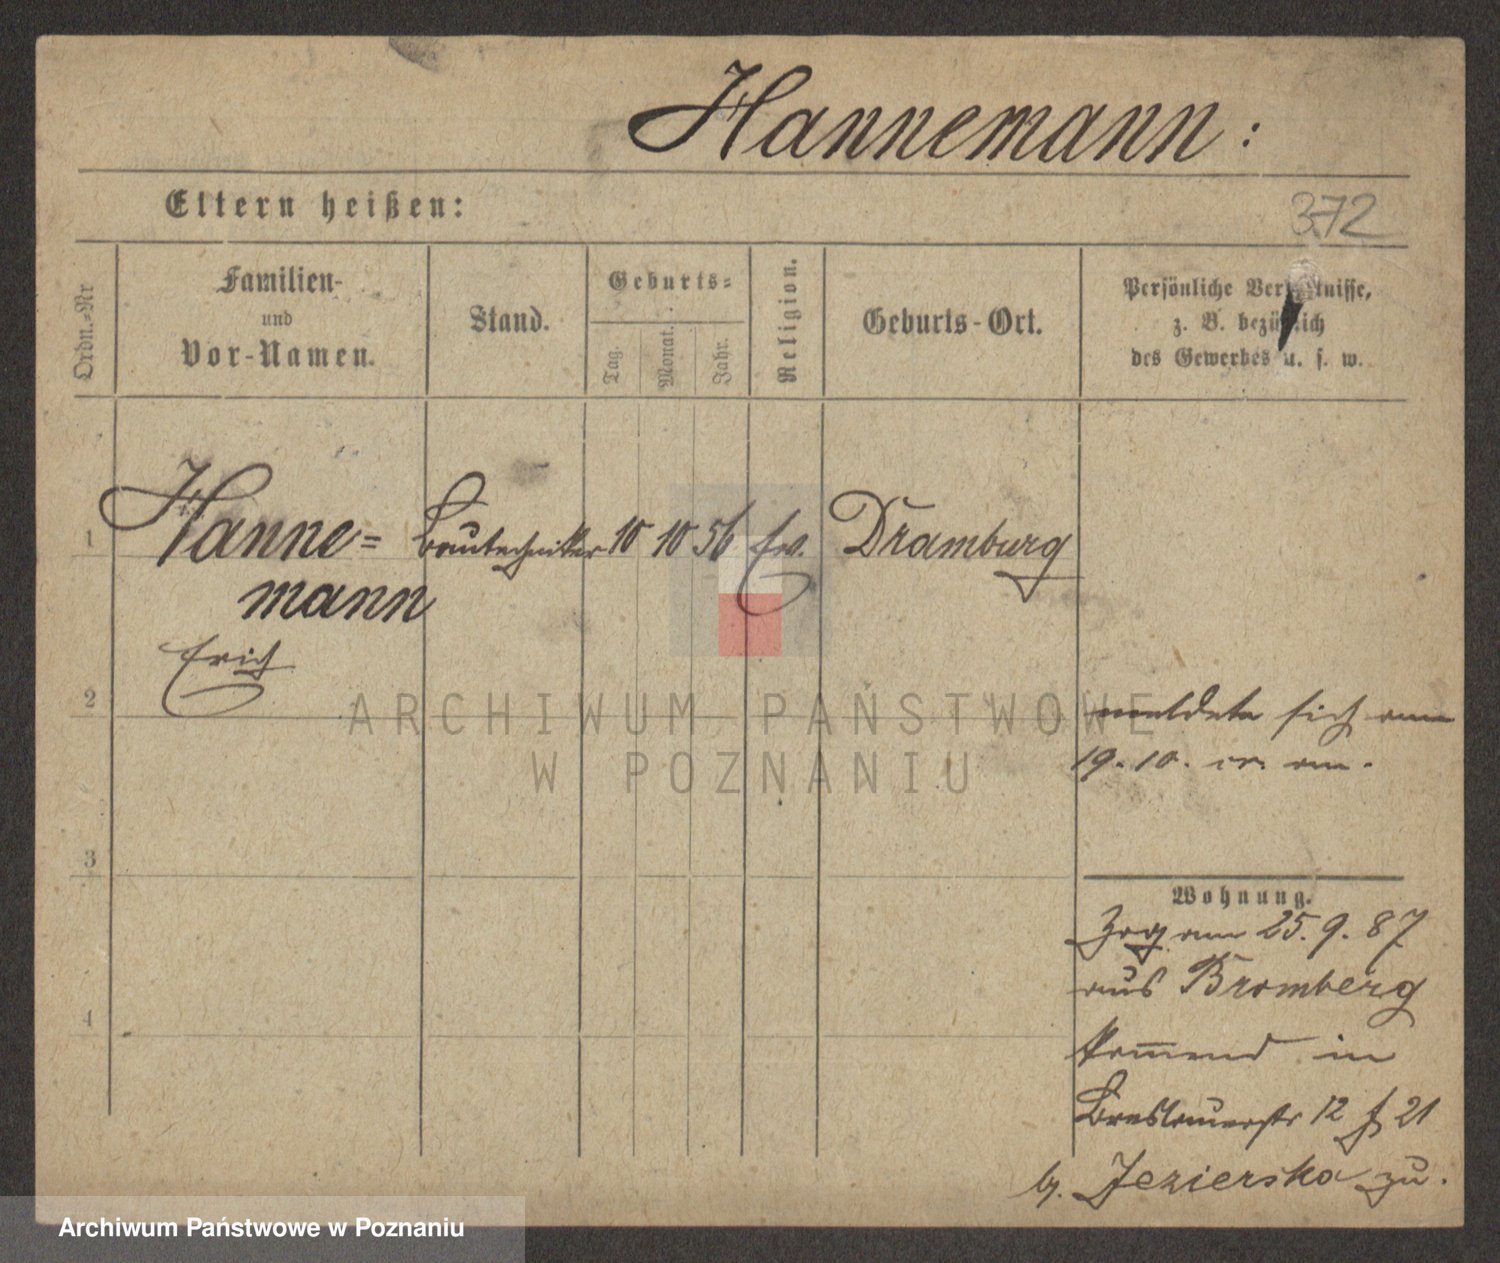 Hannemann:
Eltern heißen:
372
Ordn.=Nr
Familien-
und
Vor-Namen.
Stand.
Geburts=
Tag.
Monat.
Jahr.
Religion.
Geburts-Ort.
Persönliche Verhältnisse,
z. B. bezüglich
des Gewerbes u. s. w.
1
Hanne= Bautechniker 10 10 56 Ev. Dramburg
mann
Erich
2
meldete sich am
19.10. cr. an.
ARCHIWUM PAŃSTWOWE
W POZNANIU
3
Wohnung.
Zog am 25.9.87
aus Bromberg
4
kommend in
Breslauerstr 12 21
b. Jezierska zu.
Archiwum Państwowe w Poznaniu